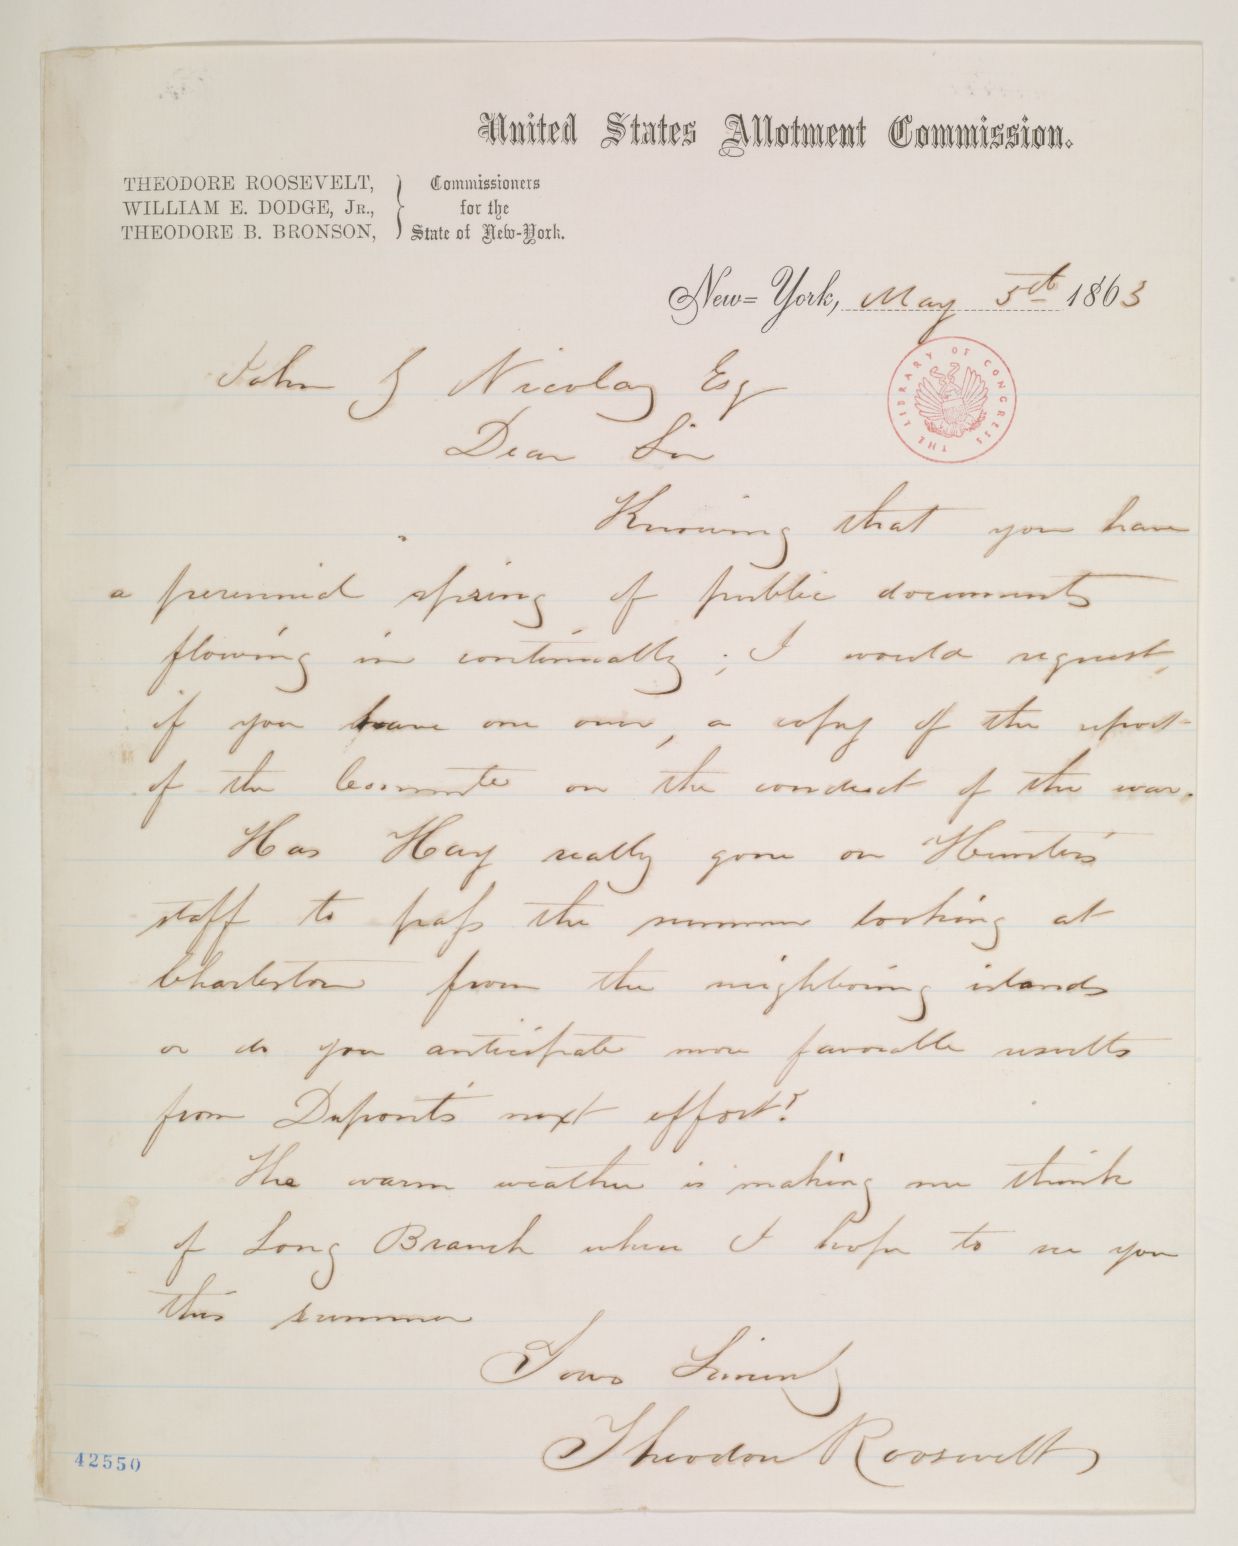 United States Allotment Commission.
THEODORE ROOSEVELT,
WILLIAM E. DODGE, JR.,
THEODORE B. BRONSON,
Commissioners
for the
State of New-York.
New-York, May 5th 1863
THE LIBRARY OF CONGRESS
John G Nicolay Esq
Dear Sir
Knowing that you have
a perennial spring of public documents
flowing in continually; I would request,
if you have one over, a copy of the report
of the Committe on the conduct of the war.
Has Hay really gone on Hunter's
staff to pass the summer looking at
Charleston from the neighboring islands
or do you anticipate more favorable results
from Dupont's next effort?
The warm weather is making me think
of Long Branch where I hope to see you
this summer
Yours Sincerely
Theodore Roosevelt
42550